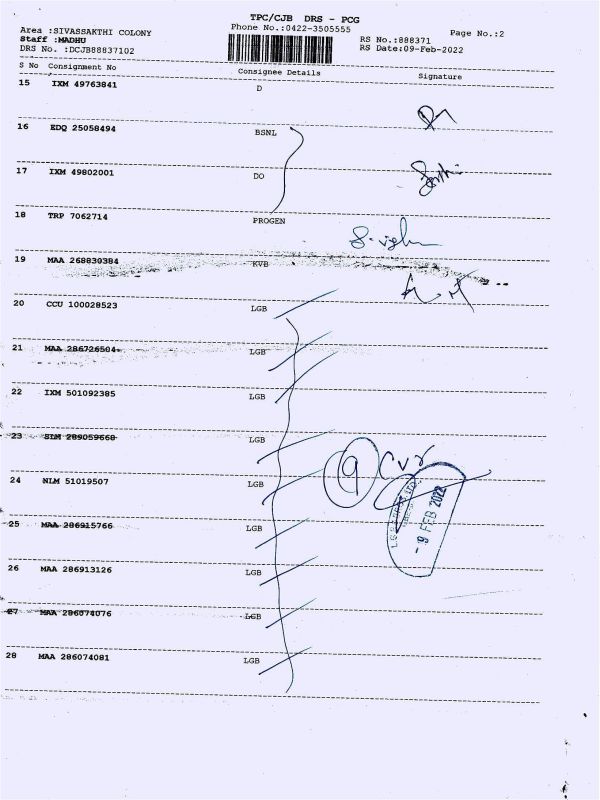 TPC/CJB DRS - PCG
Phone No.:0422-3505555
Area :SIVASSAKTHI COLONY
Staff :MADHU
DRS No. :DCJB88837102
RS No.:888371
RS Date:09-Feb-2022
Page No.:2
S No Consignment No Consignee Details Signature
15 IXM 49763841 D
16 EDQ 25058494 BSNL
17 IXM 49802001 DO
18 TRP 7062714 PROGEN
19 MAA 268830384 KVB
20 CCU 100028523 LGB
21 MAA 286726504 LGB
22 IXM 501092385 LGB
23 SLM 289059668 LGB
24 NLM 51019507 LGB
9
- 9 FEB 2022
25 MAA 286915766 LGB
26 MAA 286913126 LGB
27 MAA 286074076 LGB
28 MAA 286074081 LGB